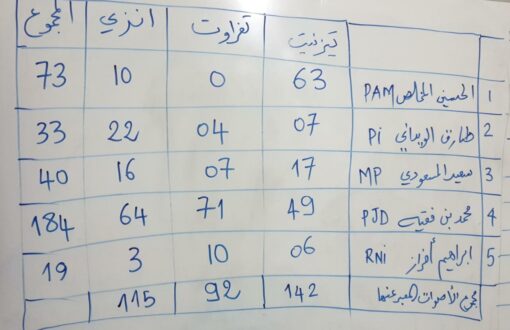 تيزنيت تفراوت انزي المجموع
1 الحسين المخلص PAM 63 0 10 73
2 طارق الوبعلاني Pi 07 04 22 33
3 سعيد المسعودي MP 17 07 16 40
4 محمد بن فقيه PJD 49 71 64 184
5 ابراهيم أفراز RNi 06 10 3 19
مجموع الأصوات المعبر عنها 142 92 115